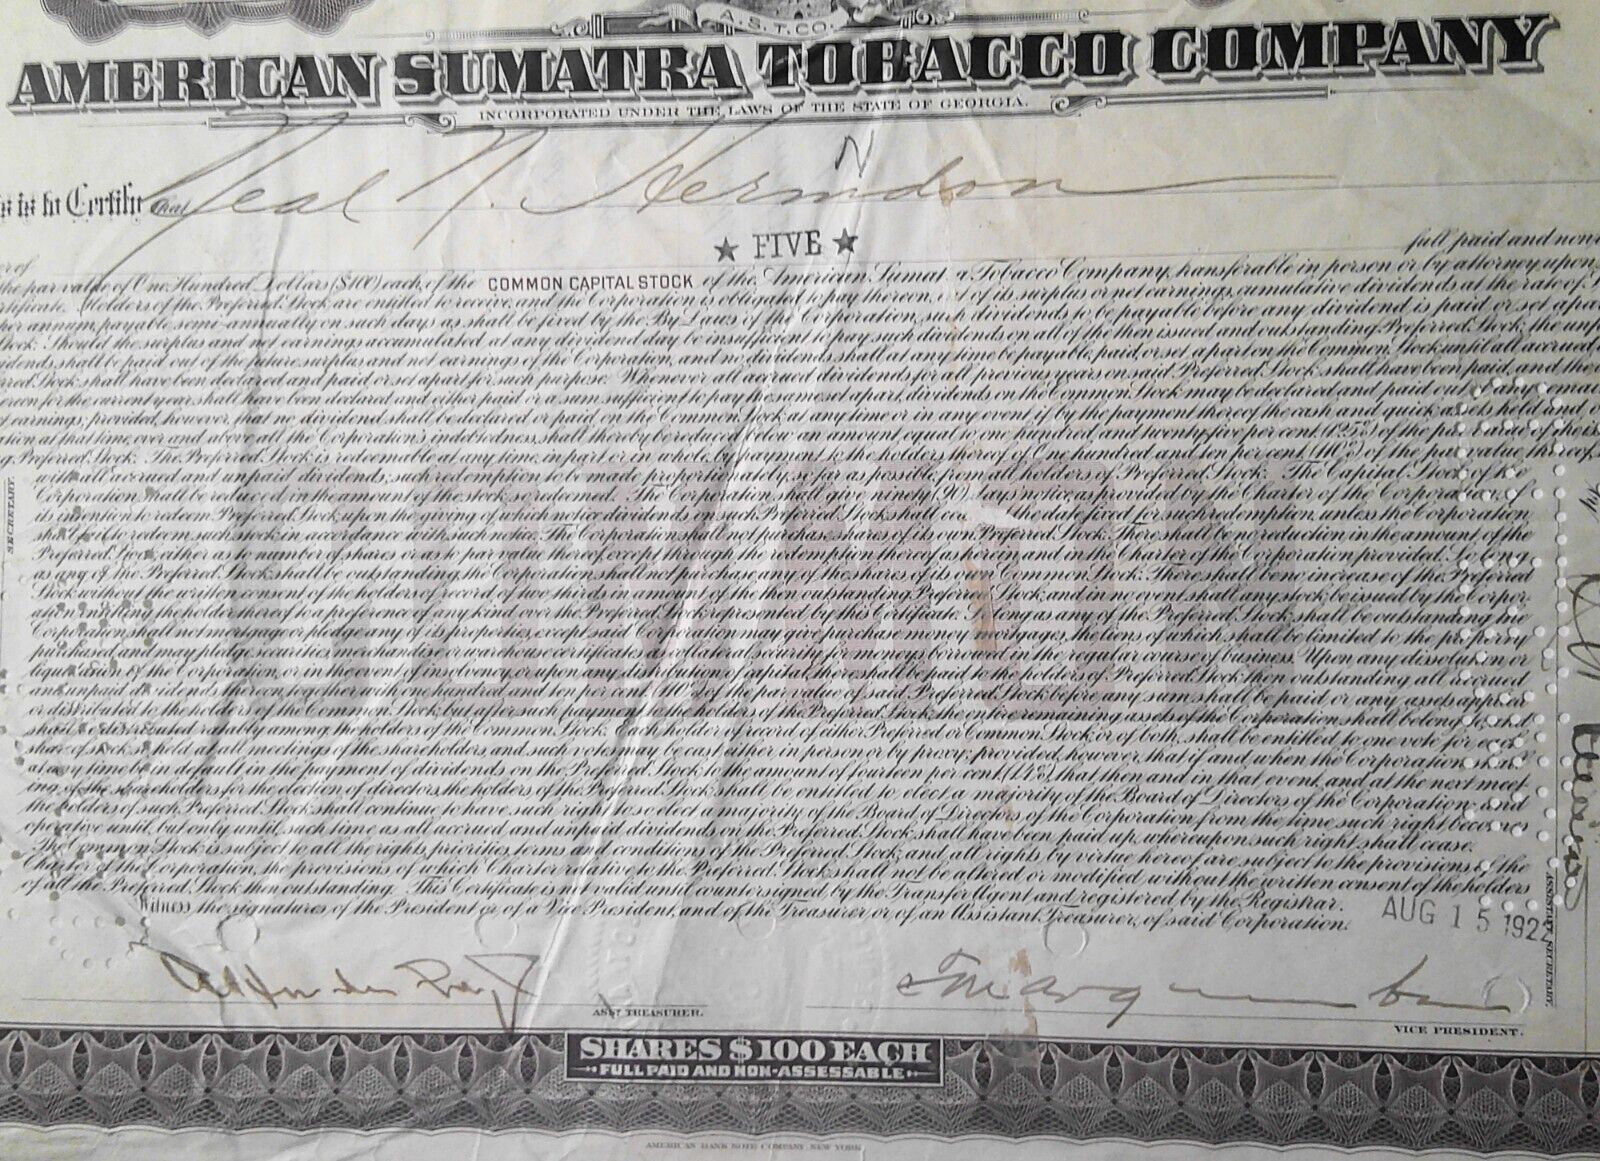 A.S.T.CO.
AMERICAN SUMATRA TOBACCO COMPANY
INCORPORATED UNDER THE LAWS OF THE STATE OF GEORGIA.
N
is is to Certify that Neal N. Herndon
★ FIVE ★
full paid and non
er of
the par value of One Hundred Dollars ($100) each, of the COMMON CAPITAL STOCK of the American Sumat a Tobacco Company, transferable in person or by attorney upon
rtificate. Holders of the Preferred Stock are entitled to receive, and the Corporation is obligated to pay thereon, out of its surplus or net earnings, cumulative dividends at the rate of
er annum, payable semi-annually on such days as shall be fixed by the By-Laws of the Corporation, such dividends to be payable before any dividend is paid or set apar
Stock. Should the surplus and net earnings accumulated at any dividend day be insufficient to pay such dividends on all of the then issued and outstanding Preferred Stock, the unp
idends shall be paid out of the future surplus and net earnings of the Corporation, and no dividends shall at any time be payable, paid, or set apart on the Common Stock until all accrued
rred Stock shall have been declared and paid or set apart for such purpose. Whenever all accrued dividends for all previous years on said Preferred Stock shall have been paid, and the
ereon for the current year shall have been declared and either paid or a sum sufficient to pay the same set apart, dividends on the Common Stock may be declared and paid out of any remai
earnings; provided, however, that no dividend shall be declared or paid on the Common Stock at any time or in any event if by the payment thereof the cash and quick assets held and
tion at that time, over and above all the Corporation's indebtedness, shall thereby be reduced below an amount equal to one hundred and twenty-five per cent. (125%) of the par value of the is
g Preferred Stock. The Preferred Stock is redeemable at any time, in part or in whole, by payment to the holders thereof of One hundred and ten per cent. (110%) of the par value thereof,
with all accrued and unpaid dividends, such redemption to be made proportionately, so far as possible, from all holders of Preferred Stock. The Capital Stock of the
Corporation shall be reduced in the amount of the stock so redeemed. The Corporation shall give ninety (90) days notice, as provided by the Charter of the Corporation, of
its intention to redeem Preferred Stock, upon the giving of which notice dividends on such Preferred Stock shall cea the date fixed for such redemption, unless the Corporation
shall fail to redeem such stock in accordance with such notice. The Corporation shall not purchase shares of its own Preferred Stock. There shall be no reduction in the amount of the
Preferred Stock either as to number of shares or as to par value thereof, except through the redemption thereof as herein and in the Charter of the Corporation provided. So long
as any of the Preferred Stock shall be outstanding, the Corporation shall not purchase any of the shares of its own Common Stock. There shall be no increase of the Preferred
Stock without the written consent of the holders of record of two thirds in amount of the then outstanding Preferred Stock, and in no event shall any stock be issued by the Corpor-
ation entitling the holder thereof to a preference of any kind over the Preferred Stock represented by this Certificate. So long as any of the Preferred Stock shall be outstanding the
Corporation shall not mortgage or pledge any of its properties, except said Corporation may give purchase money mortgages, the liens of which shall be limited to the property
purchased, and may pledge securities, merchandise or warehouse certificates as collateral security for moneys borrowed in the regular course of business. Upon any dissolution or
liquidation of the Corporation, or in the event of insolvency, or upon any distribution of capital, there shall be paid to the holders of Preferred Stock then outstanding all accrued
and unpaid dividends thereon, together with one hundred and ten per cent. (110%) of the par value of said Preferred Stock before any sum shall be paid or any assets applied
or distributed to the holders of the Common Stock, but after such payment to the holders of the Preferred Stock, the entire remaining assets of the Corporation shall belong to and
shall be distributed ratably among the holders of the Common Stock. Each holder of record of either Preferred or Common Stock, or of both, shall be entitled to one vote for each
share of stock held at all meetings of the shareholders and such votes may be cast either in person or by proxy; provided, however, that if and when the Corporation shall
at any time be in default in the payment of dividends on the Preferred Stock to the amount of fourteen per cent. (14%), that then and in that event, and at the next meet-
ing of the shareholders for the election of directors, the holders of the Preferred Stock shall be entitled to elect a majority of the Board of Directors of the Corporation and
the holders of such Preferred Stock shall continue to have such right to so elect a majority of the Board of Directors of the Corporation from the time such right becomes
operative until, but only until, such time as all accrued and unpaid dividends on the Preferred Stock shall have been paid up, whereupon such right shall cease.
The Common Stock is subject to all the rights, priorities, terms and conditions of the Preferred Stock, and all rights by virtue hereof are subject to the provisions of the
Charter of the Corporation, the provisions of which Charter relative to the Preferred Stock shall not be altered or modified without the written consent of the holders
of all the Preferred Stock then outstanding. This Certificate is not valid until countersigned by the Transfer Agent and registered by the Registrar.
Witness the signatures of the President or of a Vice President, and of the Treasurer or of an Assistant Treasurer, of said Corporation.
AUG 15 1922
SECRETARY.
ASSISTANT SECRETARY.
ASST TREASURER.
VICE PRESIDENT.
SHARES $100 EACH
FULL PAID AND NON-ASSESSABLE
AMERICAN BANK NOTE COMPANY, NEW YORK